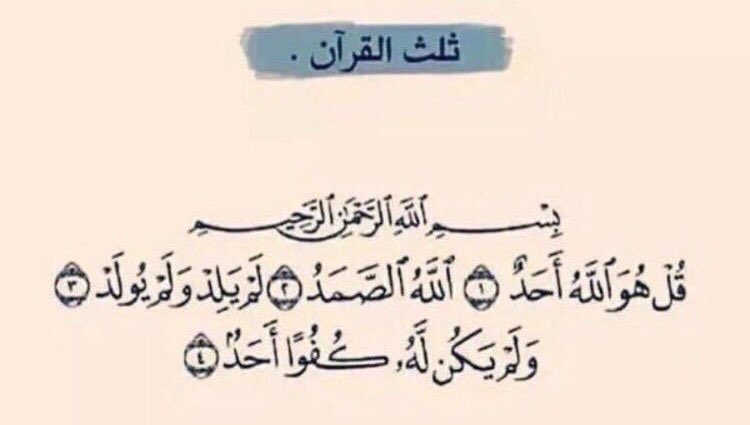 ثلث القرآن .
بِسْمِ ٱللَّهِ ٱلرَّحْمَٰنِ ٱلرَّحِيمِ
قُلْ هُوَ ٱللَّهُ أَحَدٌ ١ ٱللَّهُ ٱلصَّمَدُ ٢ لَمْ يَلِدْ وَلَمْ يُولَدْ ٣
وَلَمْ يَكُن لَّهُۥ كُفُوًا أَحَدٌۢ ٤